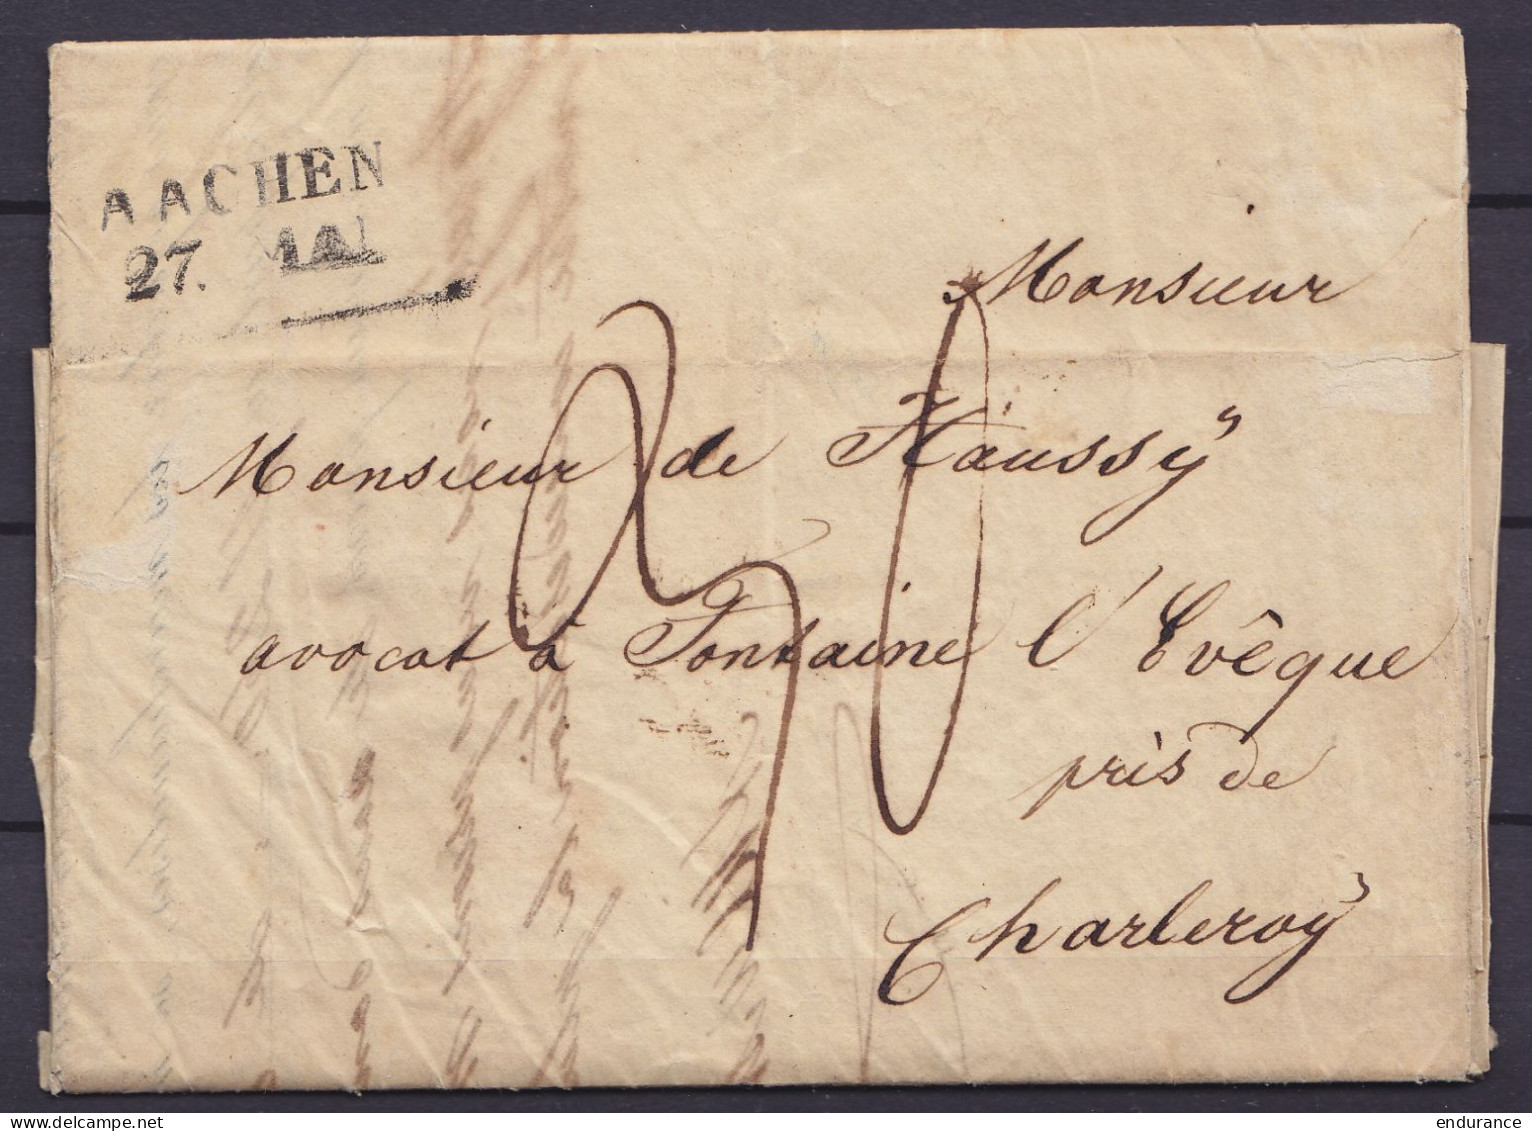 AACHEN
27. MAI
Monsieur
Monsieur de Haussÿ
avocat à Fontaine l'Evêque
près de
Charleroÿ
endurance